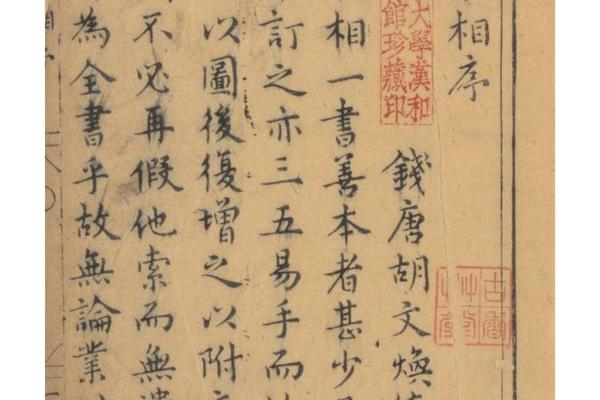 相序
大學漢和
館珍藏印
錢唐胡文煥
相一書善本者甚少
訂之亦三五易手而
以圖後復增之以附
不必再假他索而無遺
為全書乎故無論業